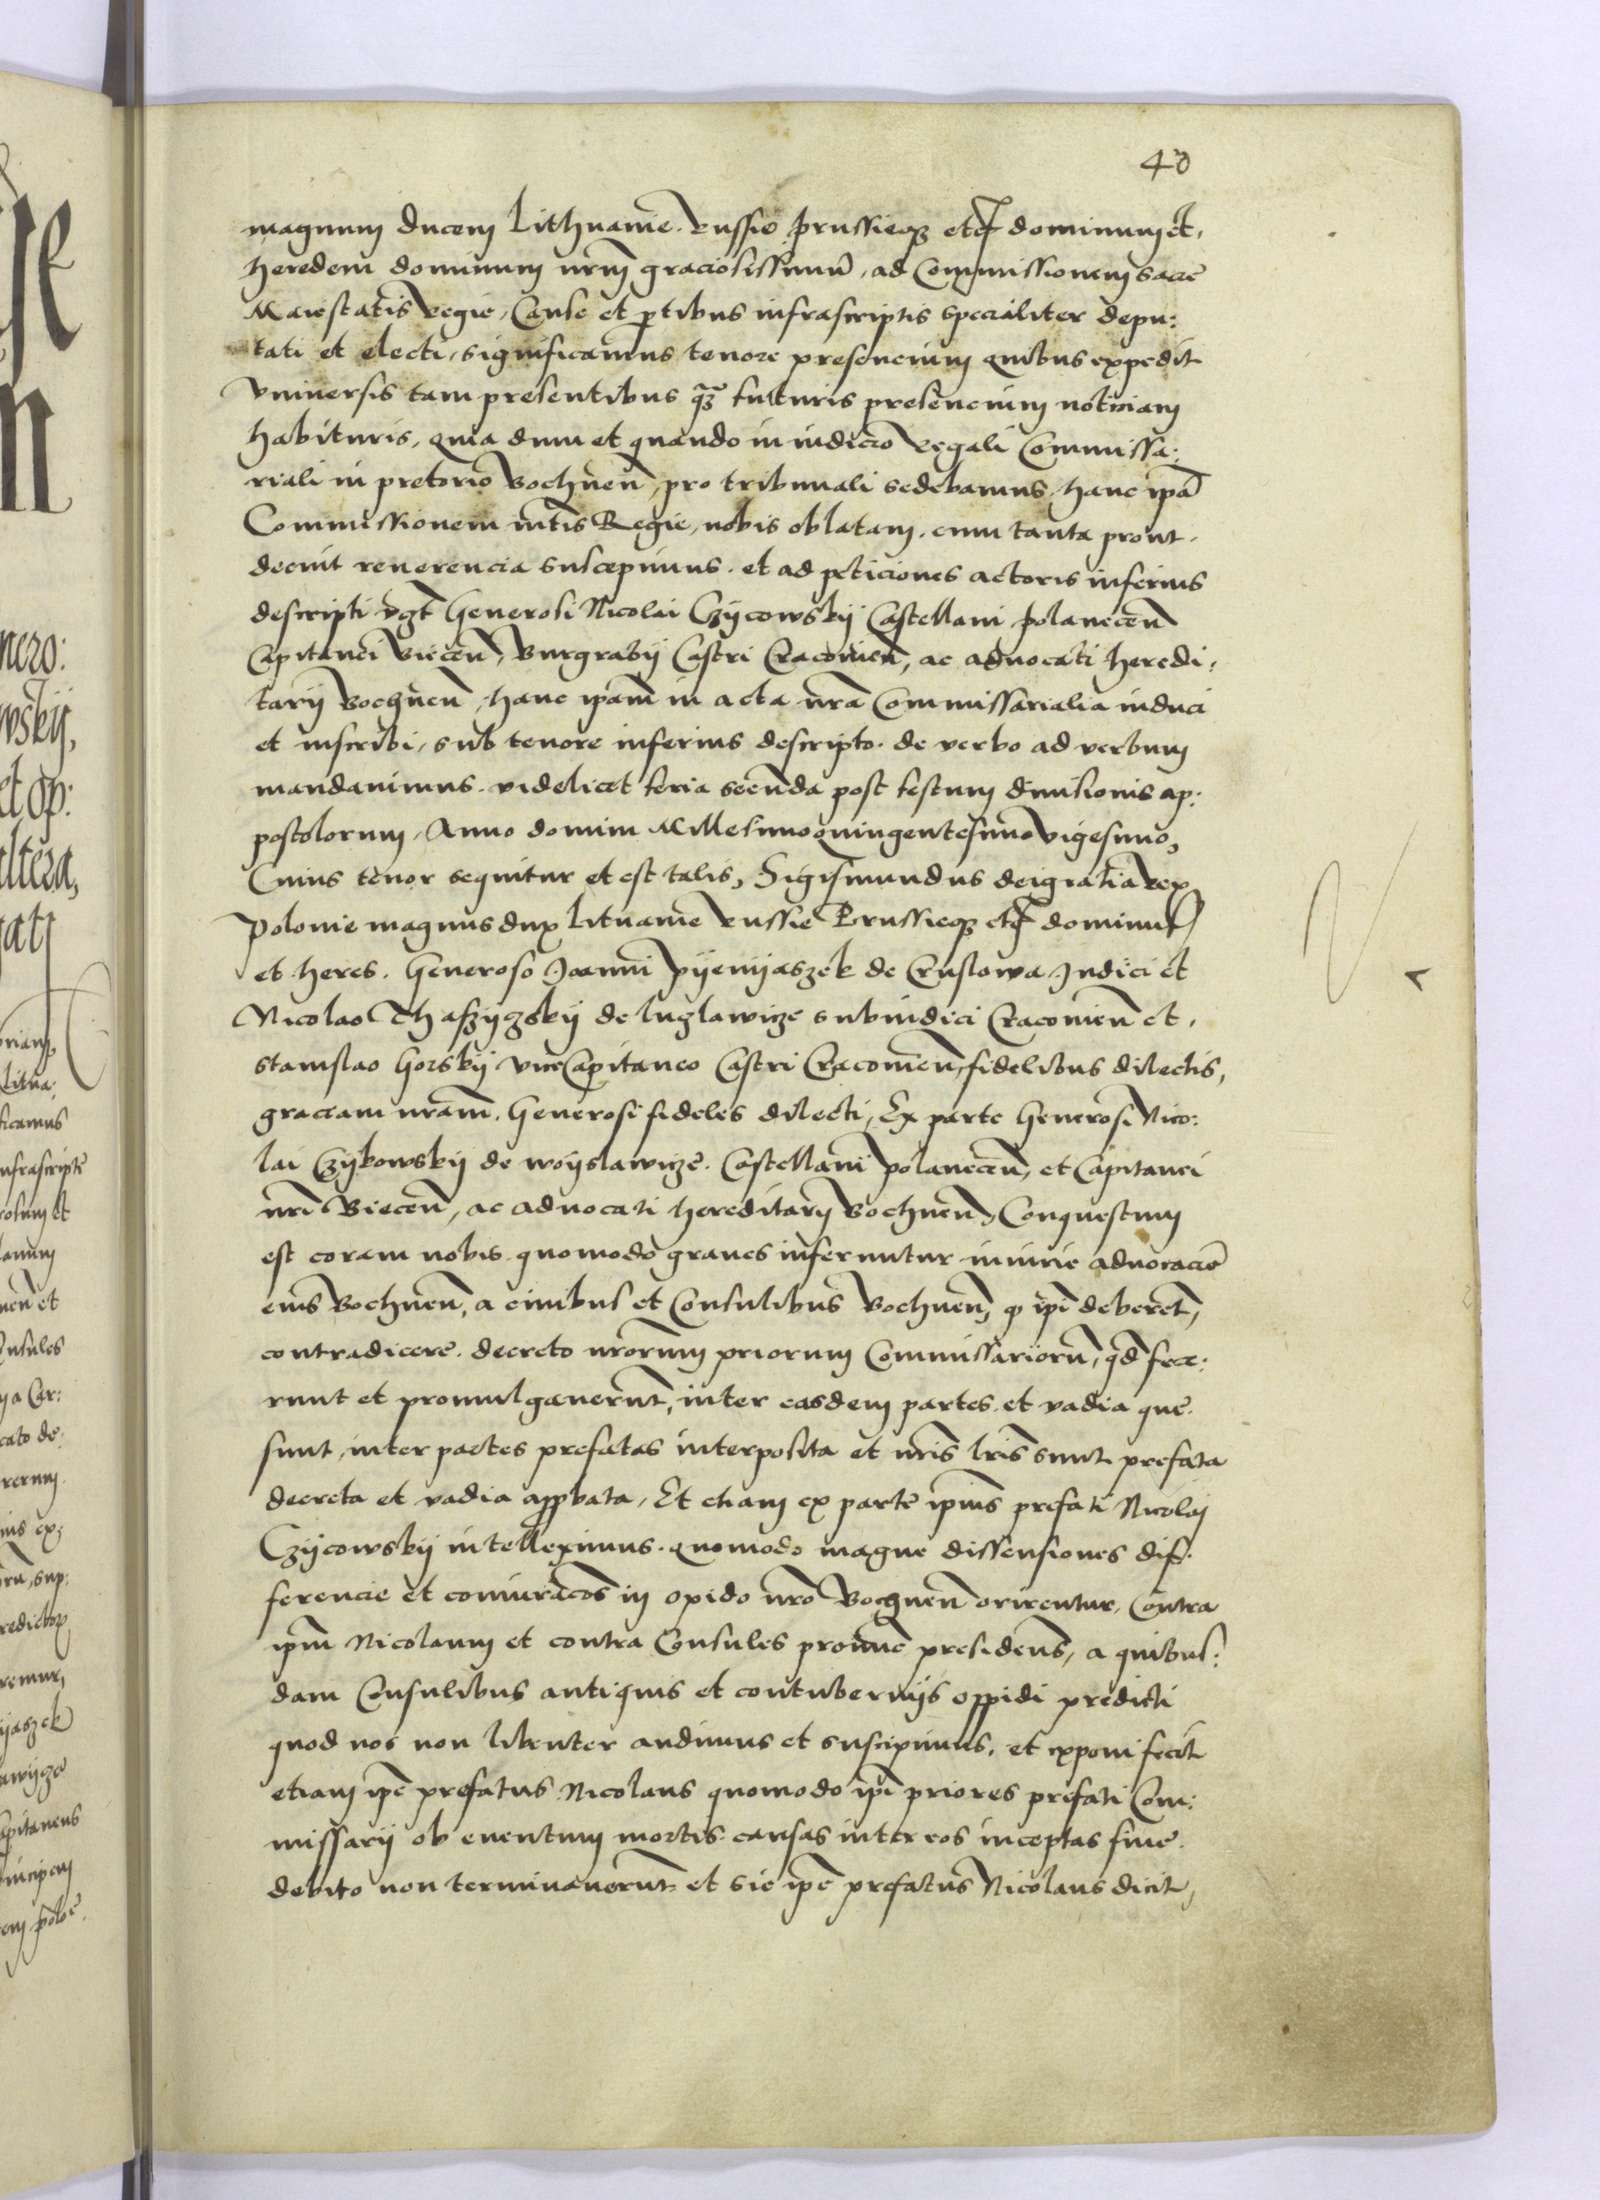 40
magnum ducem Lithuanie. Russie prussieqȝ etc̃ dominum et,
heredem dominum nr̃m graciosissimũ, ad Commissionem sacre
Maiestatis Regie, Cause et ptibus infrascriptis specialiter depu:
tati et electi, significamus tenore presencium quibus expedit
Vniuersis tam presentibus qȝ futturis presencium noticiam
habituris, quia dum et quando in iudicio Regali Commissa:
riali in pretorio Bochnen̄, pro tribunali sedebamus, hanc ipã
Commissionem mt̃is Regie, nobis oblatam. cum tanta prout.
decuit reuerencia suscepimus. et ad peticiones actoris inferius
descripti vgt̃ Generosi Nicolai Czÿcowskÿ Castellani polanecen̄
Capitanei Biecen̄, Burgrabÿ Castri Cracouien̄, ac aduocati heredi,
tarÿ Bochnen̄, hanc ipam̄ in acta nr̃a Commissarialia induci
et inscribi, sub tenore inferius descripto. de verbo ad verbum
mandauimus. videlicet feria secũnda post festum diuisionis ap:
postolorum, Anno domini Millesimoquingentesimo vigesimo,
Cuius tenor sequitur et est talis, Sigismundus deigratia Rex
Polonie magnus dux lituanie Russie Prussieqȝ etc̃ dominus
et heres. Generoso Joanni pÿenÿaszek de Cruslowa Judici et
Nicolao Thaszÿczskÿ de luczlawicze subiudici Cracouien̄ et,
stanislao Gorskÿ viceCapitaneo Castri Cracouien̄, fidelibus dilectis,
graciam nr̃am. Generosi fideles dilecti, Ex parte Generosi Nico:
lai Czÿkowskÿ de woÿslawicze. Castellani polanecen̄, et Capitanei
nr̃i Biecen̄, ac aduocati hereditarÿ Bochnen̄, Conquestum
est coram nobis. quomodo graues inferuntur iniurie aduocacie
eius Bochnen̄, a ciuibus et Consulibus Bochnen̄, q̃ ip̃i deberet̃,
contradicere. decreto nr̃orum priorum Commissariorũ, qd̃ fece:
runt et promulgauerunt̃, inter easdem partes. et vadia que.
sunt, inter partes prefatas interposita et nr̃is lr̃is sunt. prefata
decreta et vadia appbata, Et etiam ex parte ip̃ius prefati Nicolaj
Czÿcowskÿ intelleximus. quomodo magne dissensiones dif.
ferencie et coniuracõs in opido nr̃o Bochnen̄ orirentur, Contra
ipm̄ Nicolaum et contra Consules pronunc presidens̄, a quibus:
dam Consulibus antiquis et contubernÿs oppidi predicti
quod nos non libenter audimus et suscipimus, et exponi fecit
etiam ip̃e prefatus Nicolaus quomodo ip̃i priores prefati Com:
missarÿ ob euentum mortis. causas inter eos inceptas fine.
debito non terminauerunt̃ et sic ip̃e prefatus Nicolaus dicit,